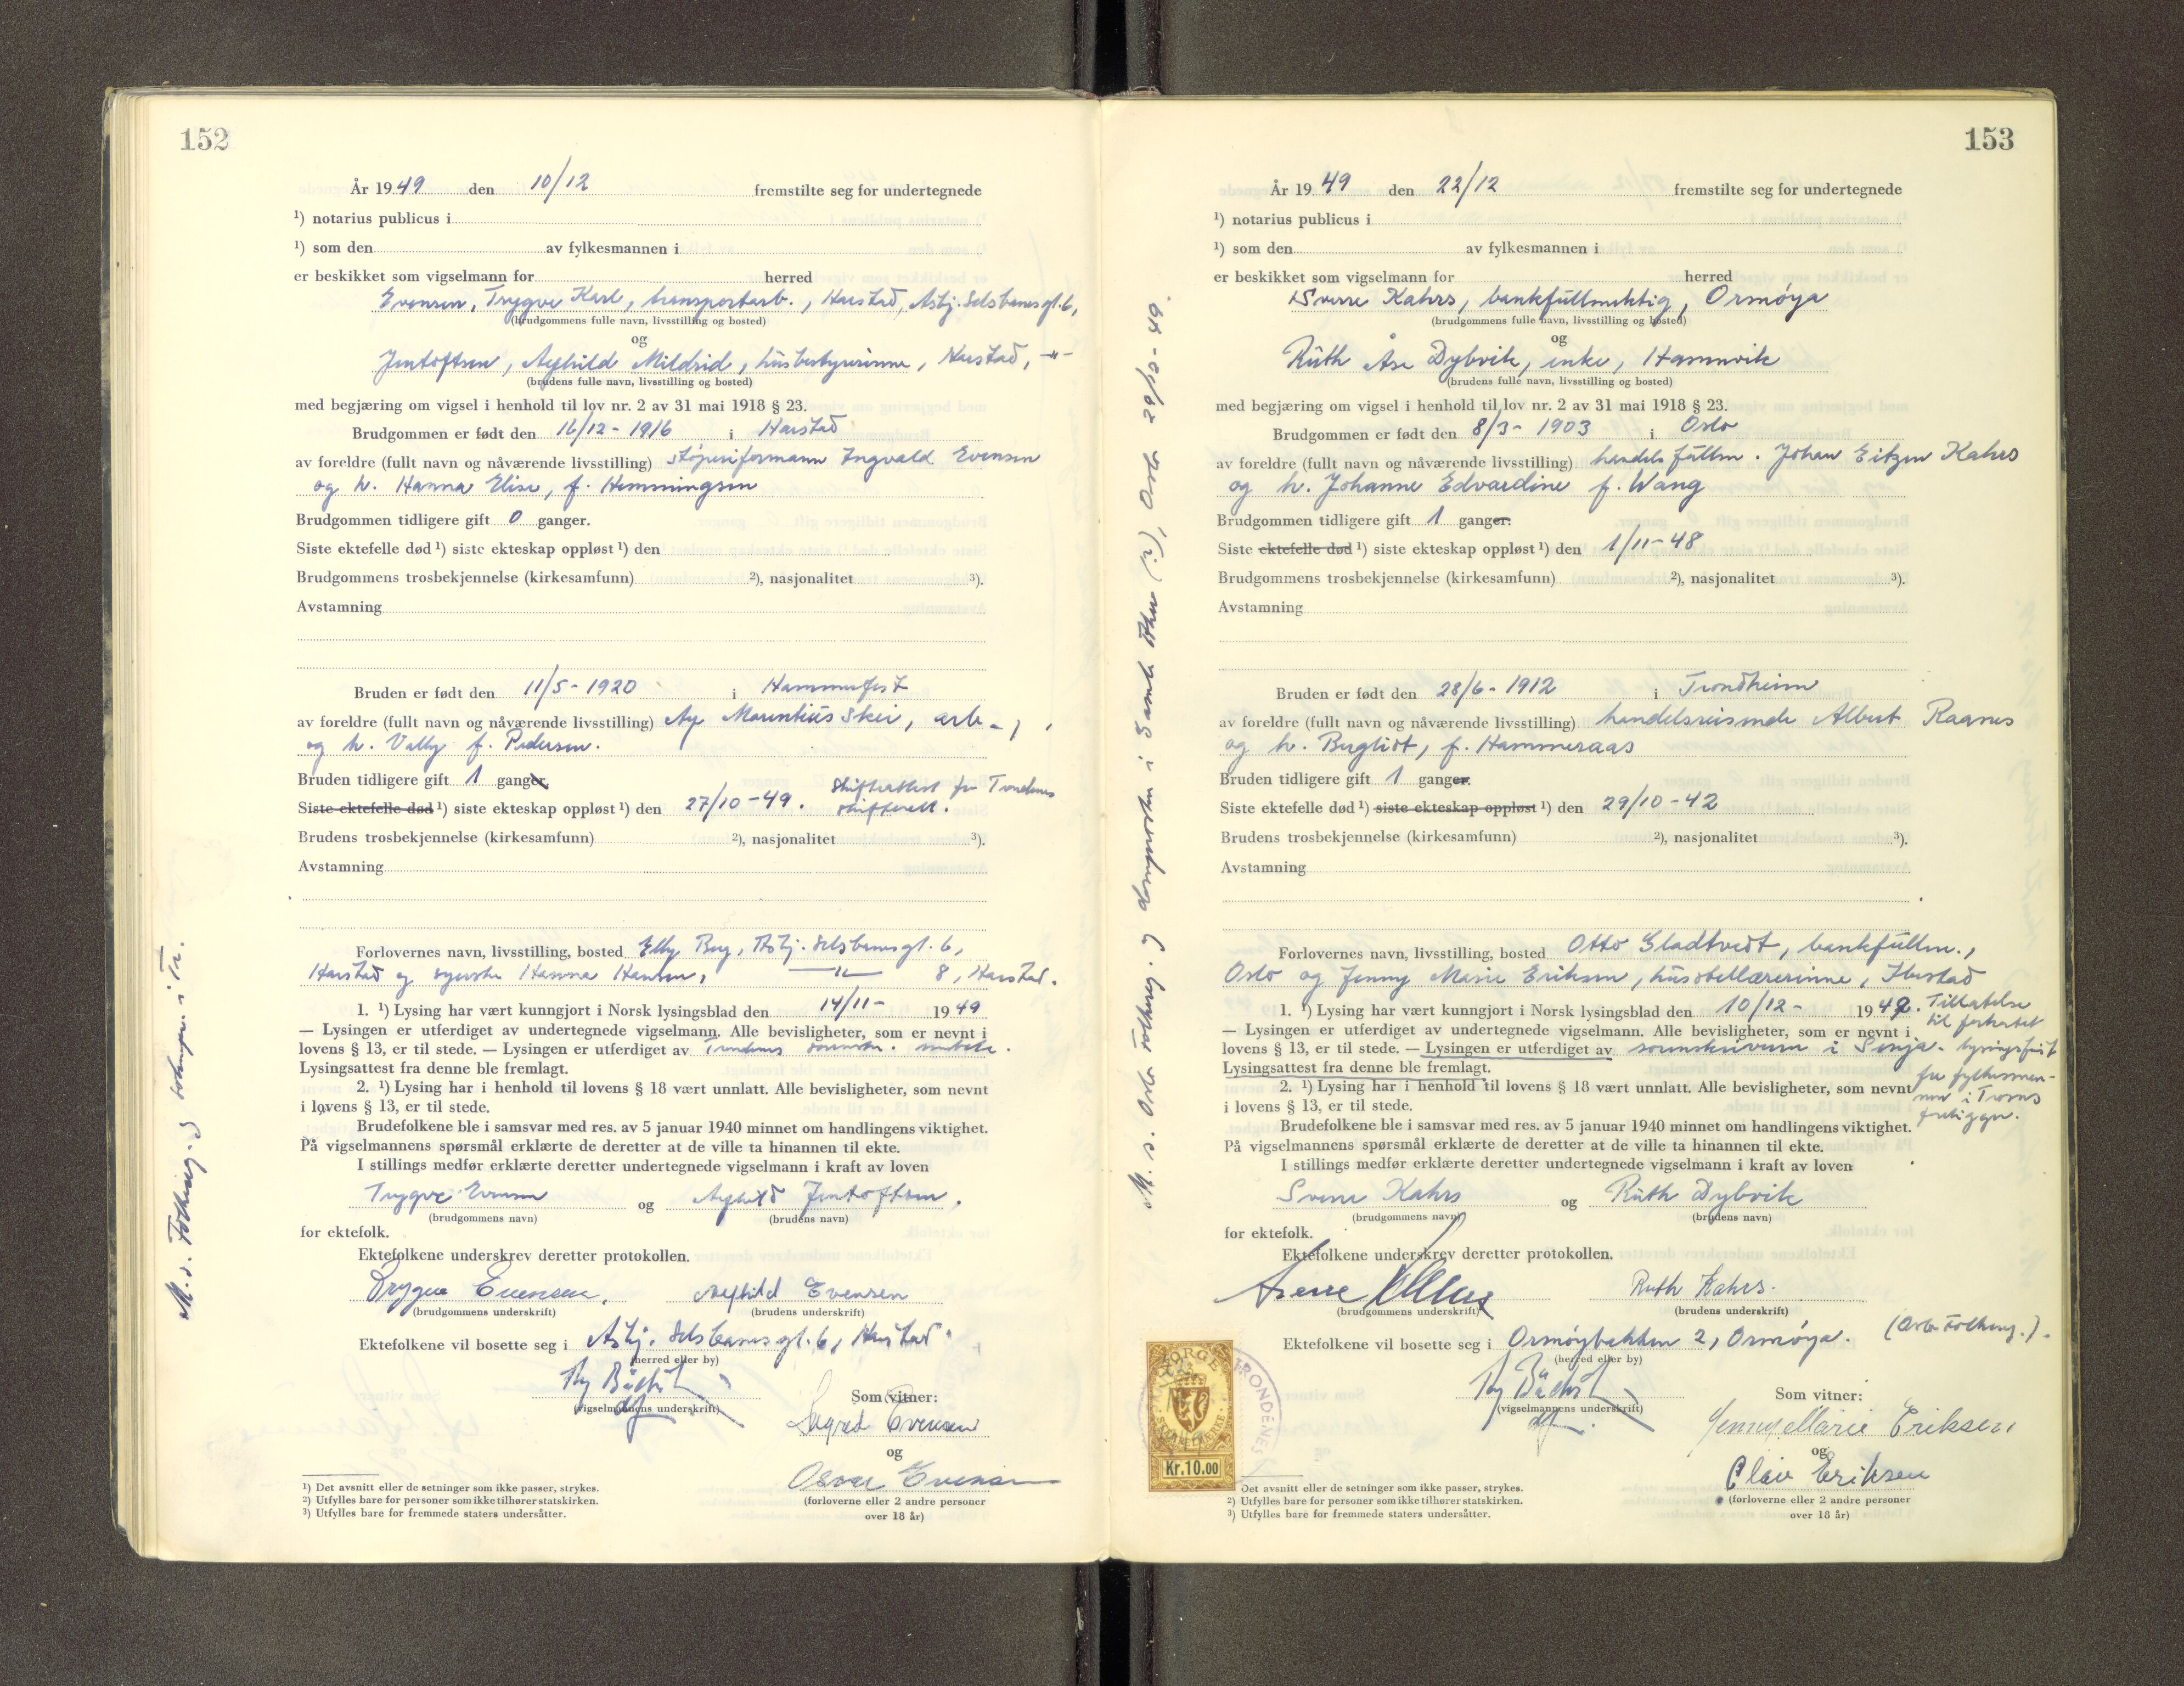 152
År 1949 den 10/12 fremstilte seg for undertegnede
¹) notarius publicus i
¹) som den av fylkesmannen i
er beskikket som vigselmann for herred
Evensen, Trygve Karl, transportarb., Harstad, Asbj. Selsbanesgt. 6,
(brudgommens fulle navn, livsstilling og bosted)
og
Jentoftsen, Aghild Mildrid, husbestyrerinne, Harstad, -"-
(brudens fulle navn, livsstilling og bosted)
med begjæring om vigsel i henhold til lov nr. 2 av 31 mai 1918 § 23.
Brudgommen er født den 16/12 - 1916 i Harstad
av foreldre (fullt navn og nåværende livsstilling) støperiformann Ingvald Evensen
og h. Hanna Elise, f. Hemmingsen
Brudgommen tidligere gift 0 ganger.
Siste ektefelle død ¹) siste ekteskap oppløst ¹) den
Brudgommens trosbekjennelse (kirkesamfunn) ²), nasjonalitet ³).
Avstamning
Bruden er født den 11/5 - 1920 i Hammerfest
av foreldre (fullt navn og nåværende livsstilling) Marentius Skei, arb.,
og h. Valby f. Pedersen.
Bruden tidligere gift 1 ganger.
Siste ektefelle død ¹) siste ekteskap oppløst ¹) den 27/10 - 49. Skifteattest fra Trondenes
skifterett.
Brudens trosbekjennelse (kirkesamfunn) ²), nasjonalitet ³).
Avstamning
Forlovernes navn, livsstilling, bosted Elly Berg, Asbj. Selsbanesgt. 6,
Harstad og Hanna Hansen, -"- 8, Harstad.
1. ¹) Lysing har vært kunngjort i Norsk lysingsblad den 14/11 - 1949
— Lysingen er utferdiget av undertegnede vigselmann. Alle bevisligheter, som er nevnt i
lovens § 13, er til stede. — Lysingen er utferdiget av Trondenes
Lysingsattest fra denne ble fremlagt.
2. ¹) Lysing har i henhold til lovens § 18 vært unnlatt. Alle bevisligheter, som nevnt
i lovens § 13, er til stede.
Brudefolkene ble i samsvar med res. av 5 januar 1940 minnet om handlingens viktighet.
På vigselmannens spørsmål erklærte de deretter at de ville ta hinannen til ekte.
I stillings medfør erklærte deretter undertegnede vigselmann i kraft av loven
Trygve Evensen og Aghild Jentoftsen.
(brudgommens navn) (brudens navn)
for ektefolk.
Ektefolkene underskrev deretter protokollen.
Trygve Evensen. Aghild Evensen
(brudgommens underskrift) (brudens underskrift)
Ektefolkene vil bosette seg i Asbj. Selsbanesgt. 6, Harstad.
(herred eller by)
(vigselmannens underskrift)
Som vitner:
Sigrid Evensen
og
Oscar Evensen
(forloverne eller 2 andre personer
over 18 år)
¹) Det avsnitt eller de setninger som ikke passer, strykes.
²) Utfylles bare for personer som ikke tilhører statskirken.
³) Utfylles bare for fremmede staters undersåtter.
M. s. Folkereg. og
153
År 1949 den 22/12 fremstilte seg for undertegnede
¹) notarius publicus i
¹) som den av fylkesmannen i
er beskikket som vigselmann for herred
Sverre Kahrs, bankfullmektig, Ormøya
(brudgommens fulle navn, livsstilling og bosted)
og
Ruth Åse Dybvik, enke, Hamnvik
(brudens fulle navn, livsstilling og bosted)
med begjæring om vigsel i henhold til lov nr. 2 av 31 mai 1918 § 23.
Brudgommen er født den 8/3 - 1903 i Oslo
av foreldre (fullt navn og nåværende livsstilling) handelsfullm. Johan Eitzen Kahrs
og h. Johanne Edvardine f. Wang
Brudgommen tidligere gift 1 ganger.
Siste ektefelle død ¹) siste ekteskap oppløst ¹) den 1/11 - 48
Brudgommens trosbekjennelse (kirkesamfunn) ²), nasjonalitet ³).
Avstamning
Bruden er født den 28/6 - 1912 i Trondheim
av foreldre (fullt navn og nåværende livsstilling) handelsreisende Albert Raanes
og h. Bergliot, f. Hammeraas
Bruden tidligere gift 1 ganger.
Siste ektefelle død ¹) siste ekteskap oppløst ¹) den 29/10 - 42
Brudens trosbekjennelse (kirkesamfunn) ²), nasjonalitet ³).
Avstamning
Forlovernes navn, livsstilling, bosted Otto Gladtvedt, bankfullm.,
Oslo og Jenny Marie Eriksen, husstellærerinne, Ibestad
1. ¹) Lysing har vært kunngjort i Norsk lysingsblad den 10/12 - 1949.
— Lysingen er utferdiget av undertegnede vigselmann. Alle bevisligheter, som er nevnt i
lovens § 13, er til stede. — Lysingen er utferdiget av sorenskriveren i Senja.
Lysingsattest fra denne ble fremlagt.
Tillatelse
til forkortet
lysingsfrist
fra fylkesman-
nen i Troms
foreligger.
2. ¹) Lysing har i henhold til lovens § 18 vært unnlatt. Alle bevisligheter, som nevnt
i lovens § 13, er til stede.
Brudefolkene ble i samsvar med res. av 5 januar 1940 minnet om handlingens viktighet.
På vigselmannens spørsmål erklærte de deretter at de ville ta hinannen til ekte.
I stillings medfør erklærte deretter undertegnede vigselmann i kraft av loven
Sverre Kahrs og Ruth Dybvik
(brudgommens navn) (brudens navn)
for ektefolk.
Ektefolkene underskrev deretter protokollen.
Sverre Kahrs Ruth Kahrs.
(brudgommens underskrift) (brudens underskrift)
Ektefolkene vil bosette seg i Ormøybakken 2, Ormøya. (Oslo Folkereg.).
(herred eller by)
(vigselmannens underskrift)
Som vitner:
Jenny Marie Eriksen
og
Olav Eriksen
(forloverne eller 2 andre personer
over 18 år)
NORGE
STEMPELMERKE
Kr.10.00
TRONDENES
Det avsnitt eller de setninger som ikke passer, strykes.
²) Utfylles bare for personer som ikke tilhører statskirken.
³) Utfylles bare for fremmede staters undersåtter.
M. s. Oslo Folkereg. og soknepresten i Gamle Aker (?), Oslo 29/12 - 49.